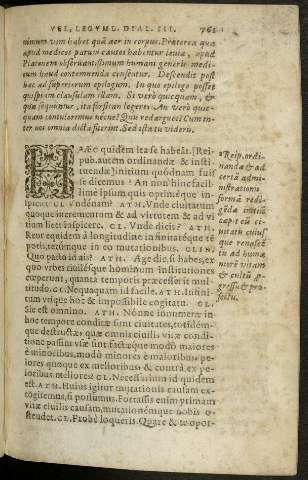 VEL LEGVML. DIAL. III. 761
nimum vim habet quã aer in corpus. Præterea quæ
apud medicos parum causæ habentur leuia, apud
Platonem obseruant. summum humani generis medi-
cum haud contemnenda censentur. Descendit post
hac ad superiorum epilogum. In quo epilogo posset
quispiam clausulam illam. Si verò quicquam, &
quæ sequuntur, ita forsitan legere: An verò quic-
quam contulerimus nécne? Quis redarguet? Cum in-
ter nos omnia dicta fuerint. Sed ista tu videris.
HÆEC quidem ita se habeãt. * Rei-
pub. autem ordinandæ & insti-
tuendæ initium quodnam fuis
se dicemus? An non hinc facil-
limè ipsum quis optiméque in-
spiciet? CL. Vndenam? ATH. Vnde ciuitatum
quoque incrementum & ad virtutem & ad vi
tium licet inspicere. CL. Vnde dicis? ATH.
Reor equidem à longitudine infinitatéque tẽ
poris, tetrùmque in eo mutationibus. CLIN.
Quo pacto id ais? ATH. Age dic, si habes, ex
quo vrbes ciuilésque hominum institutiones
cœperunt, quanta temporis præcesserit mul-
titudo. CL. Nequaquam id facile. ATH. Infini-
tum vtique hoc & impossibile cogitatu. CL.
Sic est omnino. ATH. Nónne innumeræ in-
hoc tempore conditæ sunt ciuitates, totidém-
que destructæ, quæ omnis ciuilis vitæ conditi-
tione passim vsæ sint factæque modò maiores
è minoribus, modò minores è maioribus: pe-
iores quoque ex melioribus: & contrà, ex pe-
ioribus meliores? CL. Necessarium id quidem
est. ATH. Huius igitur mutationis causam ex-
cogitemus, si possumus. Fortassis enim primam
vitæ ciuilis causam, mutationémque nobis o-
stendet. CL. Probè loqueris. Quare & te opor-
* Reip. ordi-
nandæ & ad
certã admi-
nistrationis
formã redi-
gẽdæ initiũ
capit ex ci-
uitatũ cuius
que
ad humæ
nioré vitam
& cultũ p-
gressu & pro
fectu.